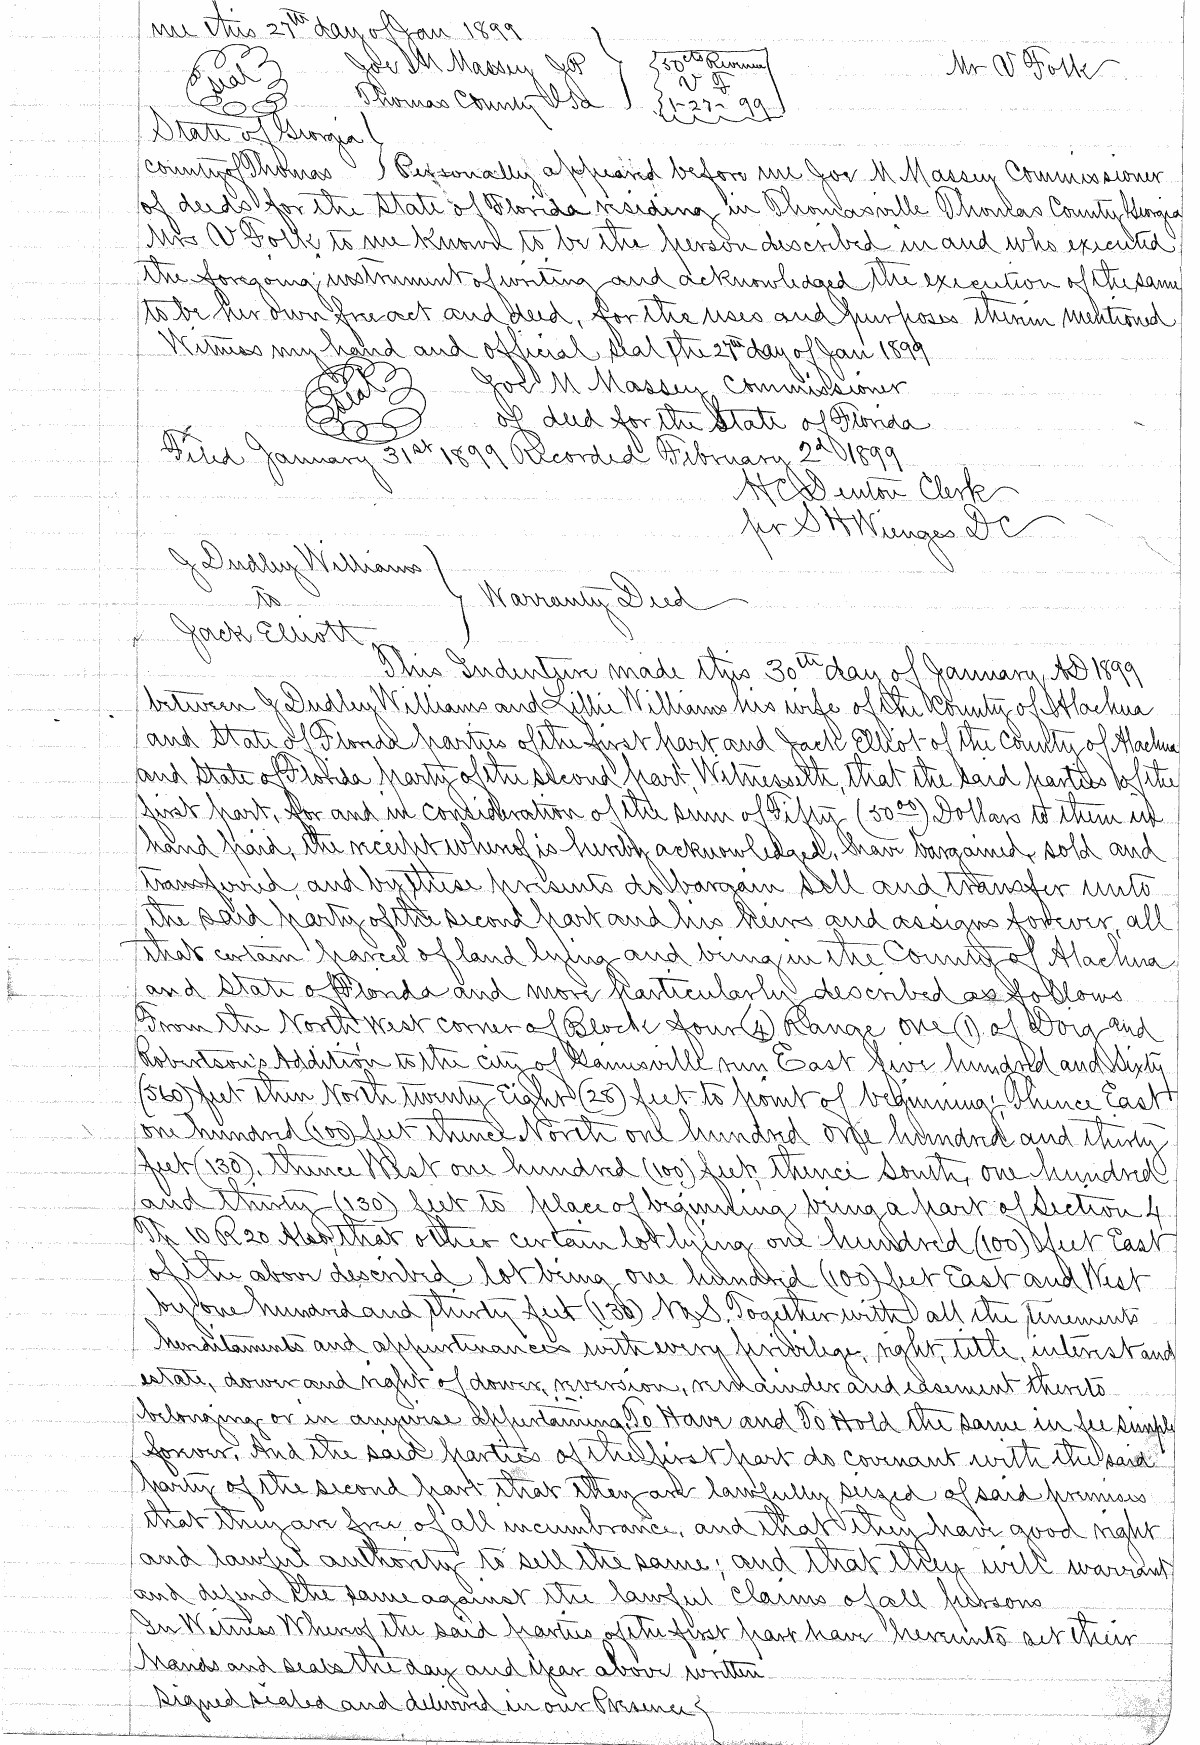 me this 27th day of Jan 1899
Seal
Joe M Massey JP
Thomas County Ga
50cts Revenue
V F
1-27-99
Mrs V Folk
State of Georgia
County of Thomas Personally appeared before me Joe M Massey Commissioner
of deeds for the State of Florida residing in Thomasville Thomas County Georgia
Mrs V Folk to me known to be the person described in and who executed
the foregoing instrument of writing and acknowledged the execution of the same
to be her own free act and deed, for the uses and purposes therein mentioned
Witness my hand and official seal the 27th day of Jan 1899
Seal
Joe M Massey Commissioner
of deed for the State of Florida
Filed January 31st 1899 Recorded February 2d 1899
H C Denton Clerk
per S H Wienges D C
J Dudley Williams
to
Jack Elliott
Warranty Deed
This Indenture made this 30th day of January AD 1899
between J Dudley Williams and Lillie Williams his wife of the County of Alachua
and State of Florida parties of the first part and Jack Elliot of the County of Alachua
and State of Florida party of the second part, Witnesseth, that the said parties of the
first part, for and in consideration of the sum of Fifty (50 00) Dollars to them in
hand paid, the receipt whereof is hereby acknowledged, have bargained, sold and
transferred, and by these presents do bargain sell and transfer unto
the said party of the second part and his heirs and assigns forever, all
that certain parcel of land lying and being in the County of Alachua
and State of Florida and more particularly described as follows
From the North West corner of Block four (4) Range one (1) of Doig and
Robertson's Addition to the city of Gainesville run East five hundred and Sixty
(560) feet then North twenty Eight (28) feet to point of beginning; Thence East
one hundred (100) feet thence North one hundred one hundred and thirty
feet (130), thence West one hundred (100) feet, thence South, one hundred
and thirty (130) feet to place of beginning being a part of Section 4
Tp 10 R 20 Also, that other certain lot lying one hundred (100) feet East
of the above described lot being one hundred (100) feet East and West
by one hundred and thirty feet (130) N & S. Together with all the tenements
hereditaments and appurtenances with every privilege, right, title, interest and
estate, dower and right of dower, reversion, remainder and easement thereto
belonging or in anywise appertaining, To Have and To Hold the same in fee simple
forever. And the said parties of the first part do covenant with the said
party of the second part that they are lawfully seized of said premises
that they are free of all incumbrance, and that they have good right
and lawful authority to sell the same; and that they will warrant
and defend the same against the lawful claims of all persons
In Witness Whereof the said parties of the first part have hereunto set their
hands and seals the day and year above written
Signed sealed and delivered in our Presence